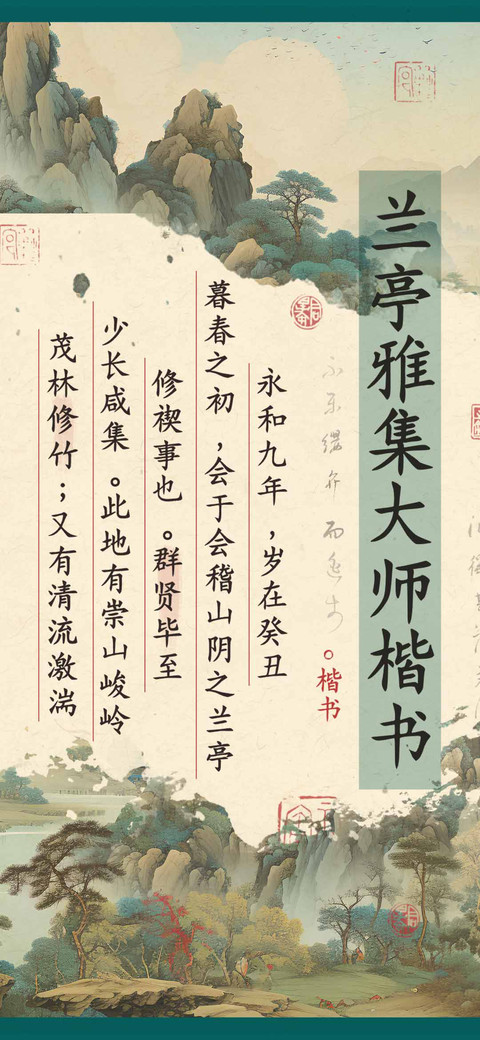 兰亭雅集大师楷书
。楷书
永和九年，岁在癸丑
暮春之初，会于会稽山阴之兰亭
修禊事也。群贤毕至
少长咸集。此地有崇山峻岭
茂林修竹；又有清流激湍